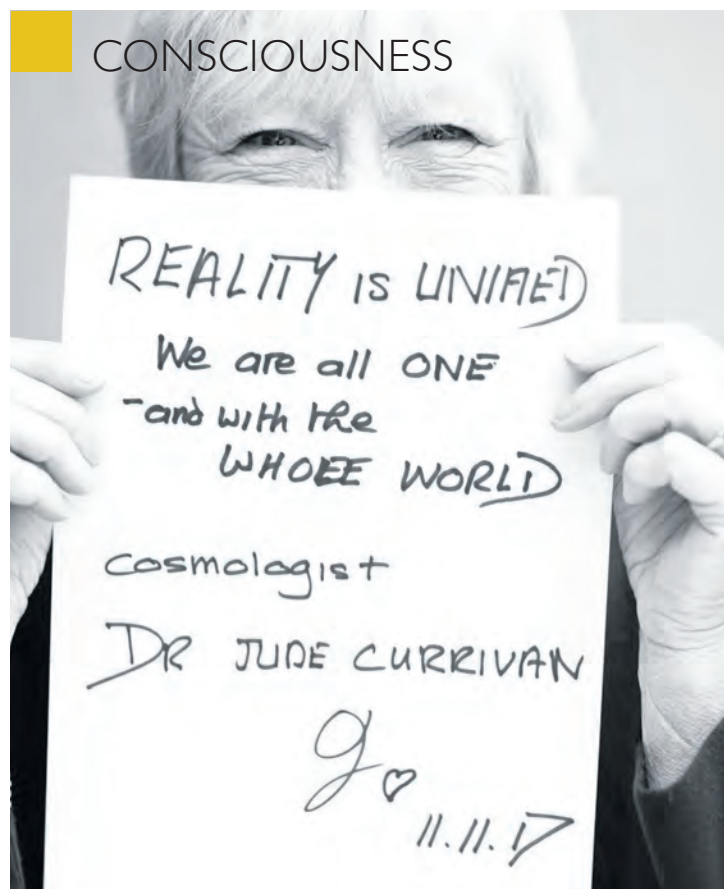 CONSCIOUSNESS
REALITY IS UNIFIED
We are all ONE
-and with the
WHOLE WORLD
cosmologist
DR JUDE CURRIVAN
J
11.11.17